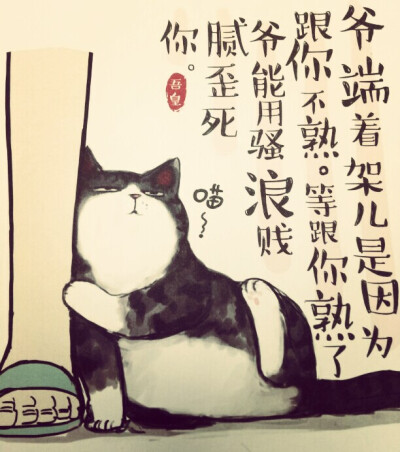 爷端着架儿是因为
跟你不熟。等跟你熟了
爷能用骚浪贱
腻歪死
你。
吾皇
喵~